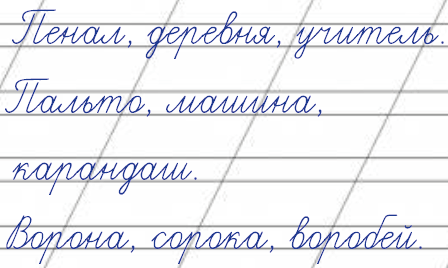 Пенал, деревня, учитель.
Пальто, машина,
карандаш.
Ворона, сорока, воробей.